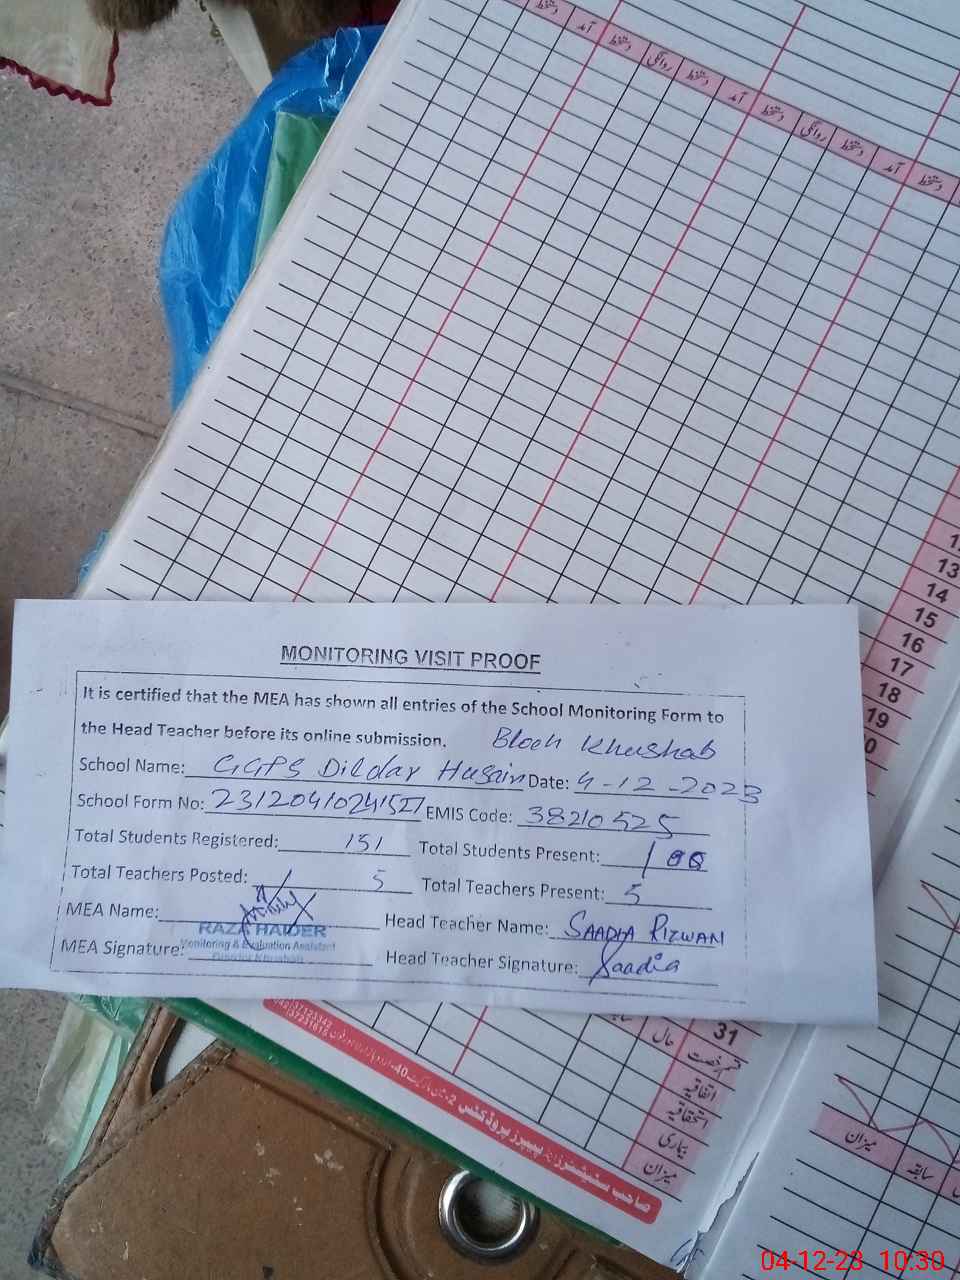 دستخط آمد دستخط روانگی دستخط آمد دستخط روانگی دستخط آمد دستخط
13
14
15
16
17
18
19
MONITORING VISIT PROOF
It is certified that the MEA has shown all entries of the School Monitoring Form to
the Head Teacher before its online submission. Bloch Khushab
School Name: GGPS Dildar Husain Date: 4-12-2023
School Form No: EMIS Code: 38210525
Total Students Registered: 151 Total Students Present: 100
Total Teachers Posted: 5 Total Teachers Present: 5
MEA Name: Head Teacher Name: SAADIA RIZWAN
RAZA HAIDER
Monitoring & Evaluation Assistant
MEA Signature: Head Teacher Signature: Saadia
31
اتفاقیہ
استحقاقیہ
بیماری
میزان
میزان
سابقہ
04-12-23 10:30